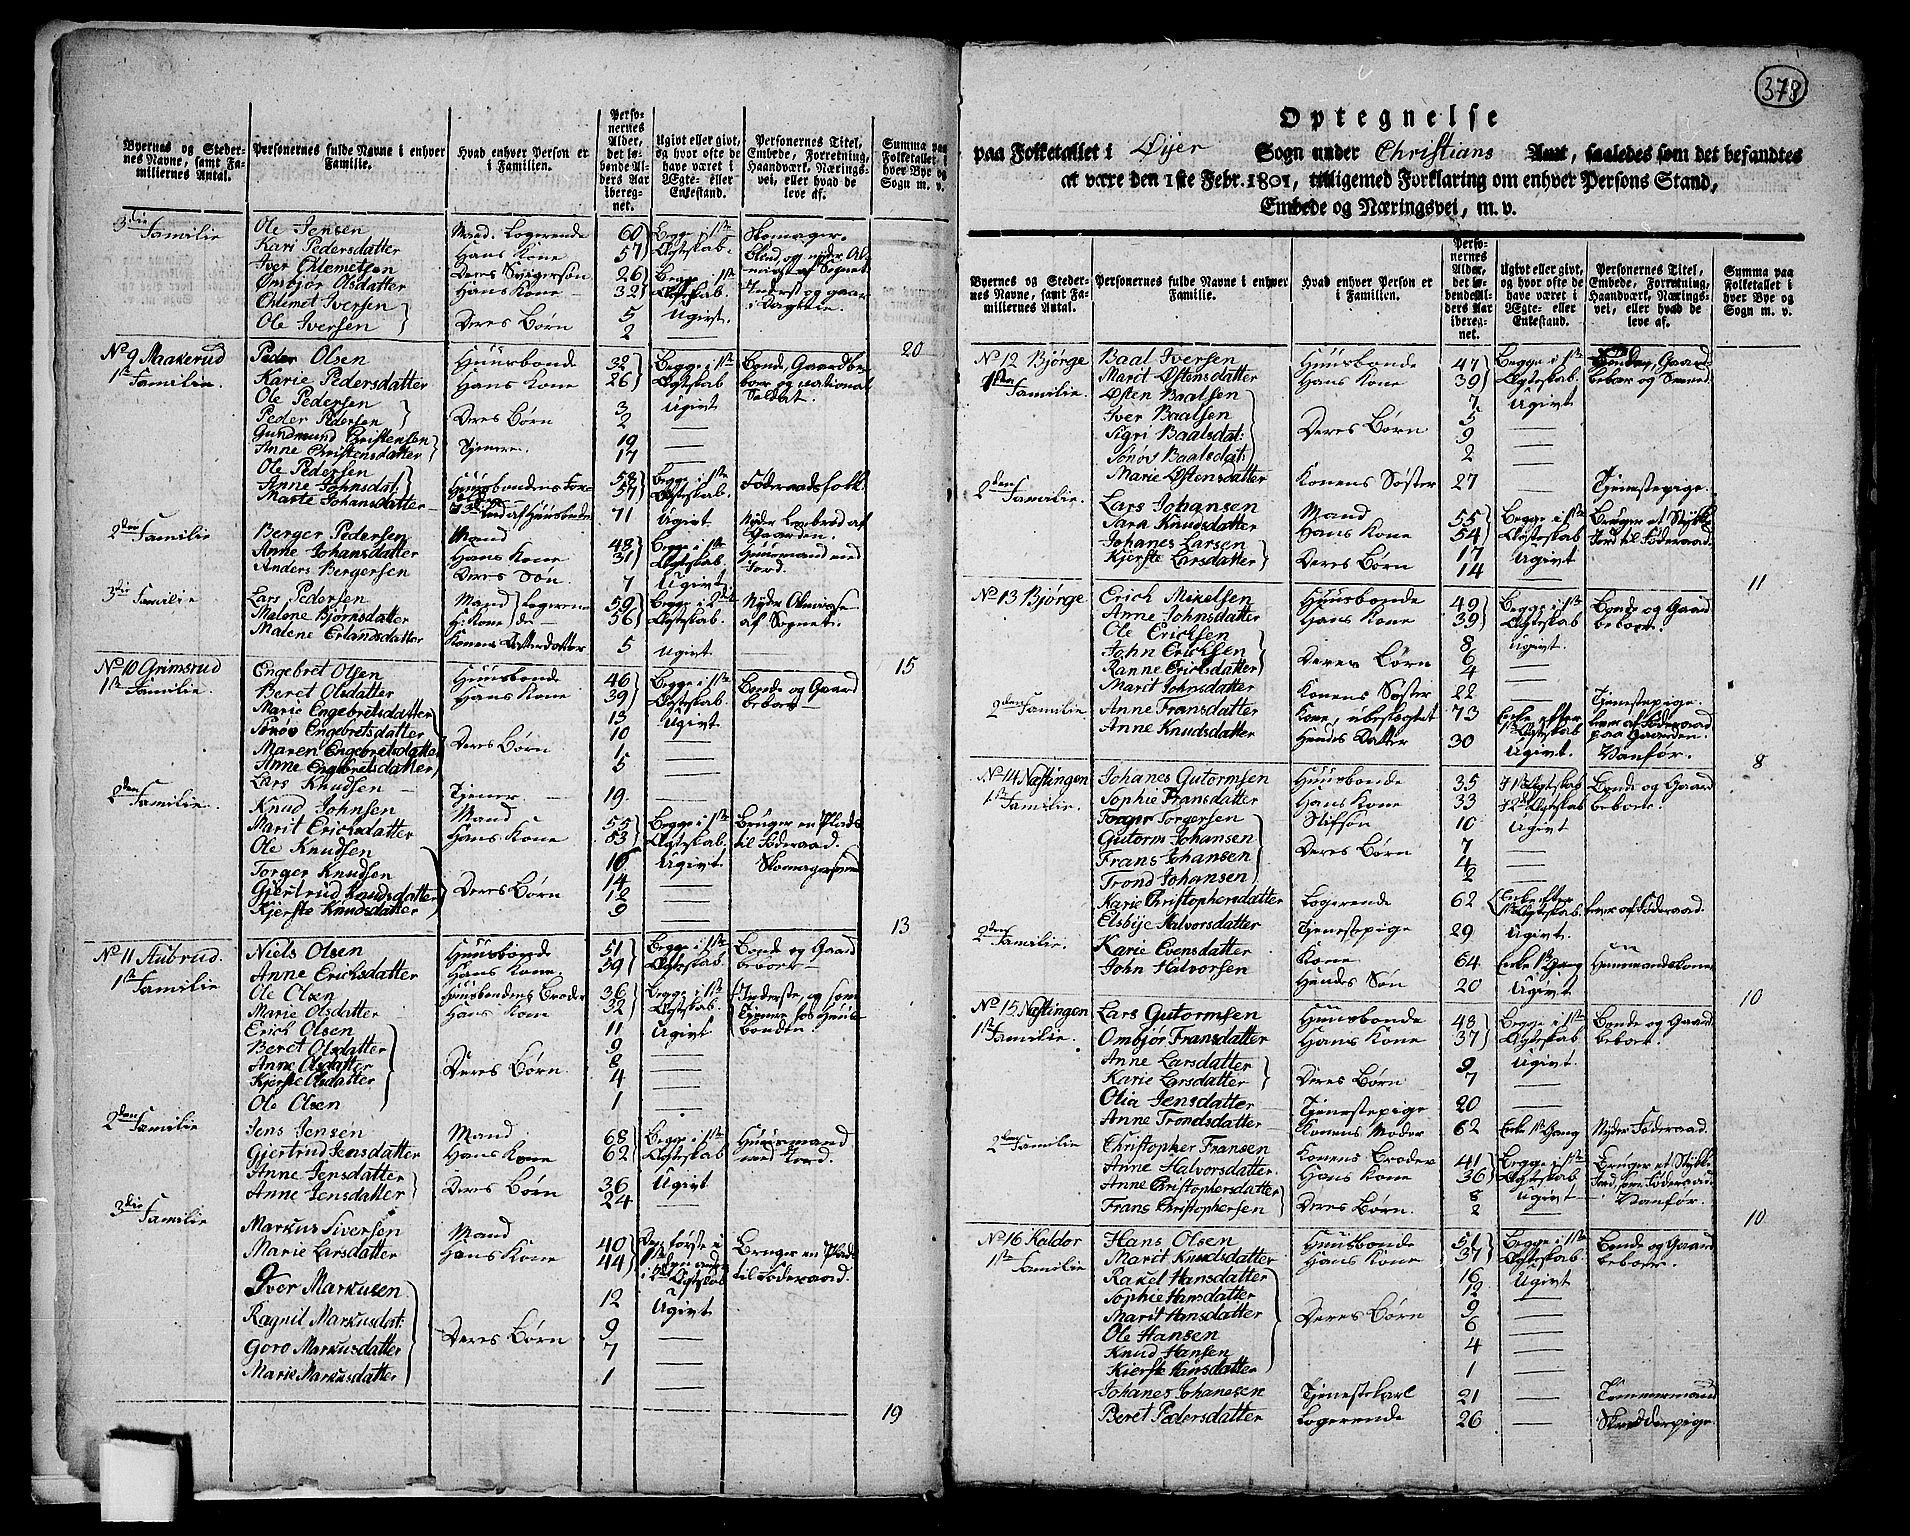 378
Byernes og Steder-
nes Navne, samt Fa-
miliernes Antal.
Personernes fulde Navne i enhver
Familie.
Hvad enhver Person er
i Familien.
Perso-
nernes
Alder,
det lø-
bende Al-
ders Aar
ibereg-
net.
Ugivt eller givt,
og hvor ofte de
have været i
Ægte- eller
Enkestand.
Personernes Titel,
Embede, Forretning,
Haandværk, Nærings-
vei, eller hvad de
leve af.
Summa paa
Folketallet i
hver Bye og
Sogn m. v.
3die Familie
Ole Jensen Mand. Logerende 60 Begge i 1ste Skomager.
Kari Pedersdatter Hans Kone 57 Ægteskab.
Iver Chlemetsen Deres Svigersøn 26 Begge i 1ste
Ombjør Olsdatter Hans Kone 32 Ægteskab.
Chlemet Iversen 5 Ugivt
Ole Iversen Deres Børn 2
20
No 9 Maakerud Peder Olsen Huusbonde 32 Begge i 1ste Bonde, Gaardbe-
1ste Familie. Karie Pedersdatter Hans Kone 26 Ægteskab boer og national
Ole Pedersen 3 Ugivt Soldat.
Peder Pedersen Deres Børn 2
Gundmund Christensen 19
Anne Christensdatter Tjenere 17
Ole Pedersen 58 Begge i 1ste
Anne Johnsdat: Huusbondens For- 57 Ægteskab. Føderaadsfolk
Marte Johansdatter 71 Ugivt Nyder Levebrød af
Gaarden.
2den Familie Berger Pedersen Mand 48 Begge i 1ste Huusmand med
Anne Johansdatter Hans Kone 31 Ægteskab. Jord.
Anders Bergersen Deres Søn. 7 Ugivt.
3die Familie Lars Pedersen Mand Logerende 59 Begge i 2det Nyder Almisse
Malene Bjørnsdatter H: Kone do 56 Ægteskab. af Sognet.
Malene Erlandsdatter Konens Datterdatter 5 Ugivt
15
No 10 Grimsrud Engebret Olsen Huusbonde 46 Begge i 1ste Bonde og Gaard
1ste Familie. Beret Olsdatter Hans Kone 39 Ægteskab beboer
Marie Engebretsdatter 13 Ugivt
Sønøv Engebretsdatter 10
Maren Engebretsdatter Deres Børn 1
Anne Engebretsdatter 5
Lars Knudsen Tjener 19
2den Familie. Knud Johnsen Mand 55 Begge i 1ste Bruger en Plads
Marit Erichsdatter Hans Kone 53 Ægteskab. til Føderaad.
Ole Knudsen Ugivt
Torger Knudsen 14
Gjertrud Knudsdatter Deres Børn 12
Kjerste Knudsdatter 9
13
No 11 Aubrud. Niels Olsen Huusbonde 51 Begge i 1ste Bonde og Gaard
1ste Familie Anne Erichsdatter Hans Kone 59 Ægteskab. beboer
Ole Olsen Huusbondens Broder 36 Begge i 1ste Inderste, og som
Marie Olsdatter Hans Kone 32 Ægteskab. Tjener hos Huus-
Erich Olsen 11 Ugivt bonden
Beret Olsdatter 9
Anne Olsdatter Deres Børn 8
Kjerste Olsdatter 4
Ole Olsen 1
2den Familie Jens Jensen Mand 68 Begge i 1ste Huusmand
Gjertrud Jensdatter Hans Kone 62 Ægteskab med Jord.
Anne Jensdatter 36 Ugivt
Anne Jensdatter Deres Børn 24
3die Familie
Markus Siversen Mand 40
Marie Larsdatter Hans Kone 44 Bruger en Plads
i 2det Ægteskab til Føderaad.
Iver Markusen 12 Ugivt
Ragnil Markusdat: 9
Goro Markusdatter Deres Børn 7
Marie Markusdatter 1
19
Optegnelse
paa Folketallet i Øyer Sogn under Christians Amt, saaledes som det befandtes
at være den 1ste Febr. 1801, tilligemed Forklaring om enhver Persons Stand,
Embede og Næringsvei, m. v.
Byernes og Steder-
nes Navne, samt Fa-
miliernes Antal.
Personernes fulde Navne i enhver
Familie.
Hvad enhver Person er
i Familien.
Perso-
nernes
Alder,
det lø-
bende Al-
ders Aar
ibereg-
net.
Ugivt eller givt,
og hvor ofte de
have været i
Ægte- eller
Enkestand.
Personernes Titel,
Embede, Forretning,
Haandværk, Nærings-
vei, eller hvad de
leve af.
Summa paa
Folketallet i
hver Bye og
Sogn m. v.
No 12 Bjørge Baal Iversen Huusbonde 47 Begge i 1ste Bonde, Gaard
1ste Familie. Marit Østensdatter Hans Kone 39 Ægteskab. beboer og Smed.
Østen Baalsen 7 Ugivt
Iver Baalsen Deres Børn 5
Sigri Baalsdat: 9
Sønøv Baalsdat: 2
Marie Østensdatter Konens Søster 27 Tjenestepige.
2den Familie. Lars Johansen Mand 55 Begge i 1ste Bruger et Stykke
Sara Knudsdatter Hans Kone 54 Ægteskab Jord til Føderaad.
Johanes Larsen 17 Ugivt
Kjerste Larsdatter Deres Børn 14
11
No 13 Bjørge Erich Mikelsen Huusbonde 49 Begge i 1ste Bonde og Gaard
Anne Johnsdatter Hans Kone 39 Ægteskab beboer.
Ole Ericksen 8 Ugivt.
John Ericksen Deres Børn 6
Ranne Ericksdatter 4
Marit Johnsdatter Konens Søster 22 Tjenestepige.
2den Familie Anne Fransdatter Kone, ubeslægtet 73 Enke efter lever af Føderaad
1ste Ægteskab paa Gaarden.
Anne Knudsdatter Hendes Datter 30 Ugivt. Vanfør.
8
No 14 Næstingen Johanes Gutormsen Huusbonde 35 I 1ste Ægteskab Bonde og Gaard
1ste Familie. Sophie Fransdatter Hans Kone 33 I 2det Ægteskab beboer.
Torger Torgersen Stifsøn 10 Ugivt
Gutorm Johansen 7
Frans Johansen Deres Børn 4
Trond Johansen 2
Karie Christophersdatter Logerende 62 Enke efter
1ste Ægteskab. lever af Føderaad.
Elsbije Halvorsdatter Tjenestepige 29 Ugivt.
2den Familie. Karie Evensdatter Kone 64 Enke 1ste Gang Huusmandskone
John Halvorsen Hendes Søn 20 Ugivt
10
No 15 Næstingen Lars Gutormsen Huusbonde 48 Begge i 1ste Bonde og Gaard
1ste Familie. Ombjør Fransdatter Hans Kone 37 Ægteskab beboer.
Anne Larsdatter 9 Ugivt
Karie Larsdatter Deres Børn 7
Olia Jensdatter Tjenestepige 20
Anne Trondsdatter Konens Moder 62 Enke 1ste Gang Nyder Føderaad.
2den Familie Christopher Fransen Konens Broder 41 Begge i 1ste Bruger et Stykke
Anne Halvorsdatter Hans Kone 36 Ægteskab Jord, som Føderaad.
Anne Christophersdatter 8 Ugivt Vanfør.
Frans Christophersen Deres Børn. 2
10
No 16 Kaldor Hans Olsen Huusbonde 51 Begge i 1ste Bonde og Gaard
1ste Familie Marit Knudsdatter Hans Kone 37 Ægteskab. beboer.
Rakel Hansdatter 16 Ugivt
Sophie Hansdatter 12
Marit Hansdatter Deres Børn 9
Ole Hansen 6
Knud Hansen 4
Kierste Hansdatter 1
Johanes Johanesen Tjenestekarl 21 Tømmermand
Beret Pedersdatter Logerende 26 Skrædderpige.